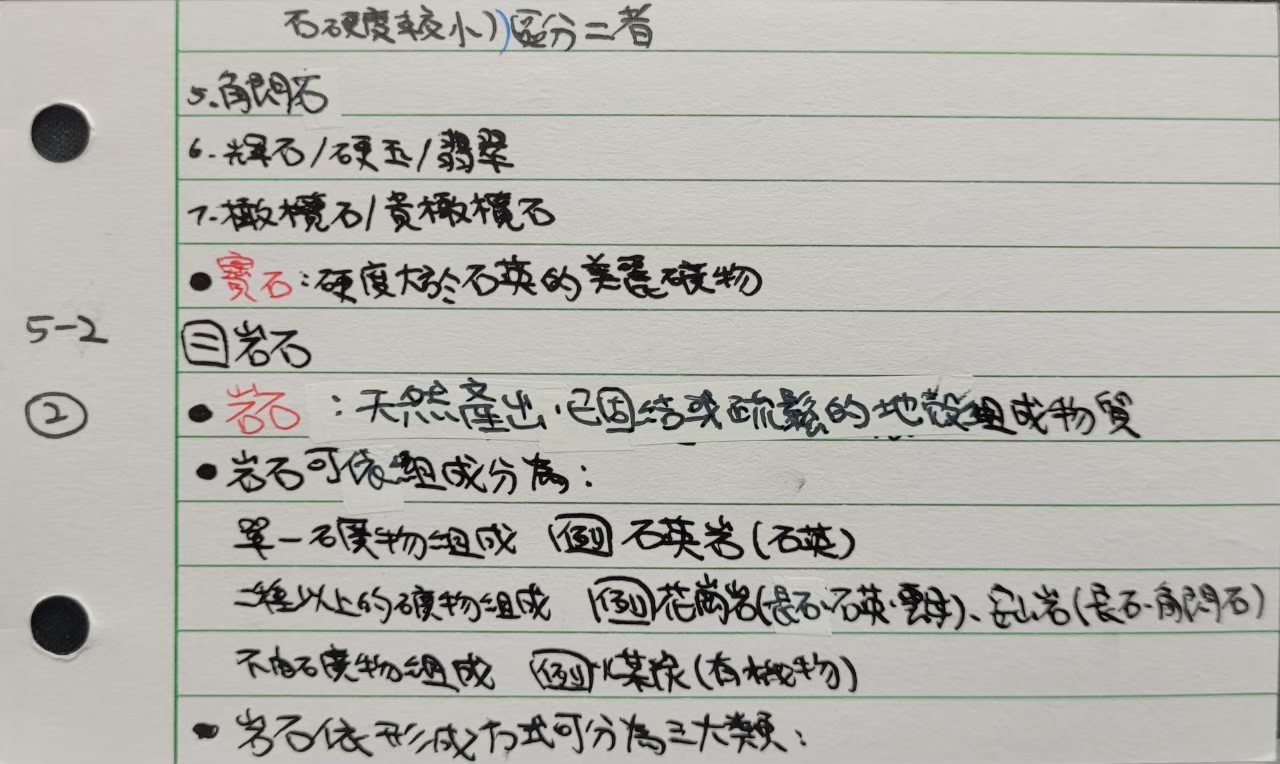 石硬度較小)區分二者
5.角閃石
6.輝石/硬玉/翡翠
7.橄欖石/貴橄欖石
●寶石:硬度大於石英的美麗礦物
5-2
三岩石
②
●岩石:天然產出、已固結或疏鬆的地殼組成物質
●岩石可依組成分為:
單一礦物組成 例 石英岩(石英)
二種以上的礦物組成 例 花崗岩(長石、石英、雲母)、安山岩(長石、角閃石)
不由礦物組成 例 煤炭(有機物)
●岩石依形成方式可分為三大類: